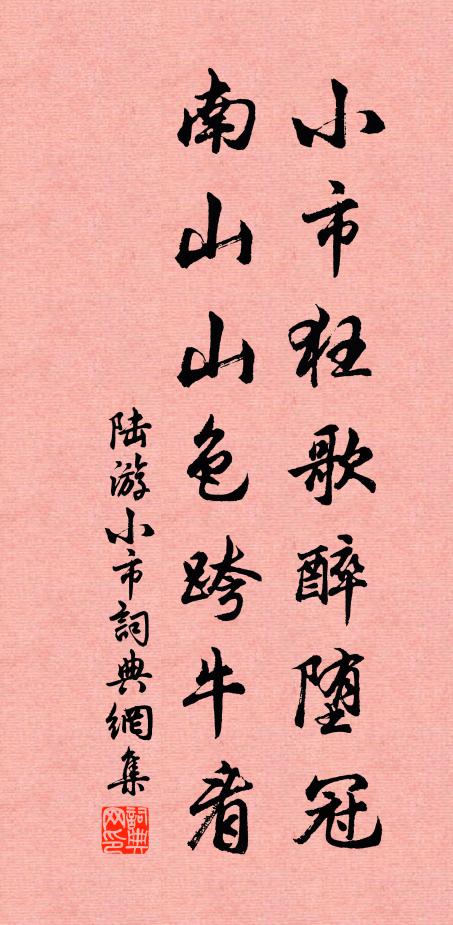 小市狂歌醉堕冠
南山山色跨牛看
陆游小市詞典網集
詞典网印